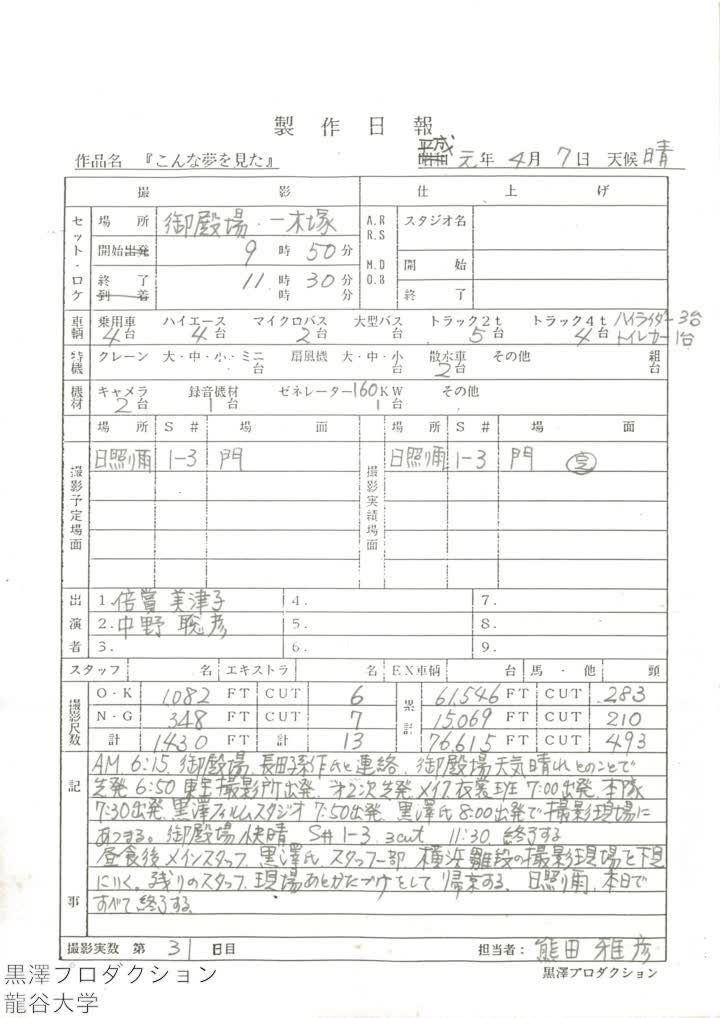 製作日報
作品名 『こんな夢を見た』 昭和 平成 元年 4月 7日 天候 晴
撮影 仕上げ
セット・ロケ 場所 御殿場・一本塚 A.R R.S スタジオ名
開始 出発 9時 50分 M.D O.B 開始
終了 到着 11時 30分 終了
時 分
車輌 乗用車 4台 ハイエース 4台 マイクロバス 2台 大型バス トラック2t 5台 トラック4t 4台 ハイライダー 3台
トイレカー 1台
特機 クレーン 大・中・小・ミニ 台 扇風機 大・中・小 台 散水車 2台 その他 組 台
機材 キャメラ 2台 録音機材 1台 ゼネレーター 160KW 1台 その他
場所 S# 場面 場所 S# 場面
撮影予定場面 日照り雨 1-3 門 撮影実績場面 日照り雨 1-3 門 完
出演者 1. 倍賞 美津子 4. 7.
2. 中野 聡彦 5. 8.
3. 6. 9.
スタッフ 名 エキストラ 名 EX車輌 台 馬・他 頭
撮影尺数 O・K 1,082 FT CUT 6 累計 61,546 FT CUT 283
N・G 348 FT CUT 7 15,069 FT CUT 210
計 1430 FT 計 13 76,615 FT CUT 493
記事 AM 6:15. 御殿場、長田孫作氏と連絡、御殿場天気晴れとのことで
先発 6:50 東宝撮影所出発、才2次先発メイク衣裳班 7:00出発、本隊
7:30出発、黒澤フィルムスタジオ 7:50出発、黒澤氏 8:00出発で撮影現場に
あつまる。御殿場快晴 S# 1-3 3cut 11:30 終了する
昼食後メインスタッフ、黒澤氏 スタッフ一部 横浜雛段の撮影現場を下見
にいく。残りのスタッフ、現場あとかたづけをして帰京する。 日照り雨、本日で
すべて終了する。
撮影実数 第 31 日目 担当者: 熊田 雅彦
黒澤プロダクション
黒澤プロダクション
龍谷大学